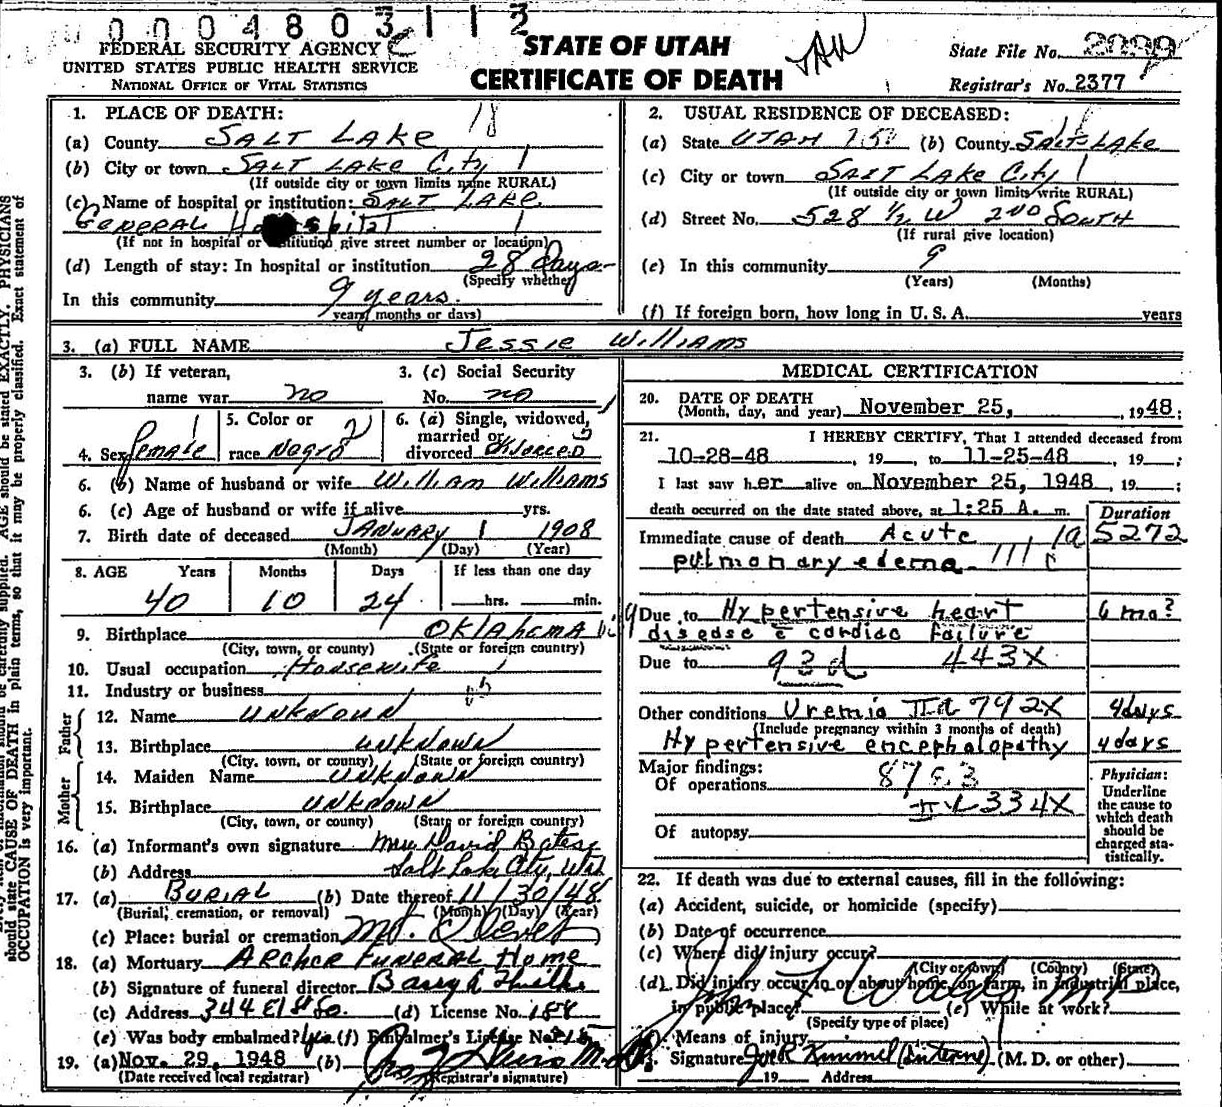 0004803112
FEDERAL SECURITY AGENCY
UNITED STATES PUBLIC HEALTH SERVICE
NATIONAL OFFICE OF VITAL STATISTICS
STATE OF UTAH
CERTIFICATE OF DEATH
State File No.
Registrar's No. 2377
1. PLACE OF DEATH: 18
(a) County SALT LAKE
(b) City or town SALT LAKE City 1
(If outside city or town limits name RURAL)
(c) Name of hospital or institution: SALT LAKE
GENERAL Hospital 1
(If not in hospital or institution give street number or location)
(d) Length of stay: In hospital or institution 28 days
(Specify whether
In this community 9 years.
years, months or days)
2. USUAL RESIDENCE OF DECEASED:
(a) State UTAH (b) County Salt Lake
(c) City or town SALT LAKE City 1
(If outside city or town limits write RURAL)
(d) Street No. 528 1/2 W 2ND SOUTH
(If rural give location)
(e) In this community 9
(Years) (Months)
(f) If foreign born, how long in U. S. A. years
3. (a) FULL NAME Jessie Williams
3. (b) If veteran, name war no
3. (c) Social Security No. no
4. Sex Female 1
5. Color or race Negro 2
6. (a) Single, widowed, married or divorced DIVORCED
6. (b) Name of husband or wife William Williams
6. (c) Age of husband or wife if alive yrs.
7. Birth date of deceased JANUARY 1 1908
(Month) (Day) (Year)
8. AGE Years Months Days If less than one day
40 10 24 hrs. min.
9. Birthplace OKLAHOMA
(City, town, or county) (State or foreign country)
10. Usual occupation Housewife
11. Industry or business
Father
12. Name UNKNOWN
13. Birthplace UNKNOWN
(City, town, or county) (State or foreign country)
Mother
14. Maiden Name UNKNOWN
15. Birthplace UNKNOWN
(City, town, or county) (State or foreign country)
16. (a) Informant's own signature Mrs David Bates
(b) Address Salt Lake City, Utah
17. (a) BURIAL (b) Date thereof 11/30/48
(Burial, cremation, or removal) (Month) (Day) (Year)
(c) Place: burial or cremation Mt. Olivet
18. (a) Mortuary ARCHER FUNERAL Home
(b) Signature of funeral director
(c) Address 344 E 1st So. (d) License No. 188
(e) Was body embalmed? yes (f) Embalmer's License No. 215
19. (a) Nov. 29, 1948 (b)
(Date received local registrar) (Registrar's signature)
MEDICAL CERTIFICATION
20. DATE OF DEATH
(Month, day, and year) November 25, , 1948;
21. I HEREBY CERTIFY, That I attended deceased from
10-28-48 , 19 , to 11-25-48 , 19 ;
I last saw her alive on November 25, 1948 , 19 ;
death occurred on the date stated above, at 1:25 A. m.
Duration
Immediate cause of death Acute 5272
pulmonary edema
Due to Hypertensive heart 6 mo?
disease c cardiac failure
Due to 93d 443X
Other conditions Uremia II a 792X 4 days
(Include pregnancy within 3 months of death)
Hypertensive encephalopathy 4 days
Major findings:
Of operations 8783
334X
Of autopsy
Physician:
Underline
the cause to
which death
should be
charged sta-
tistically.
22. If death was due to external causes, fill in the following:
(a) Accident, suicide, or homicide (specify)
(b) Date of occurrence
(c) Where did injury occur?
(City or town) (County) (State)
(d) Did injury occur in or about home, on farm, in industrial place,
in public place? (e) While at work?
(Specify type of place)
(f) Means of injury
23. Signature Jack Kimmel (Interne) (M. D. or other)
19 Address
should state CAUSE OF DEATH in plain terms, so that it may be properly classified. Exact statement of
OCCUPATION is very important.